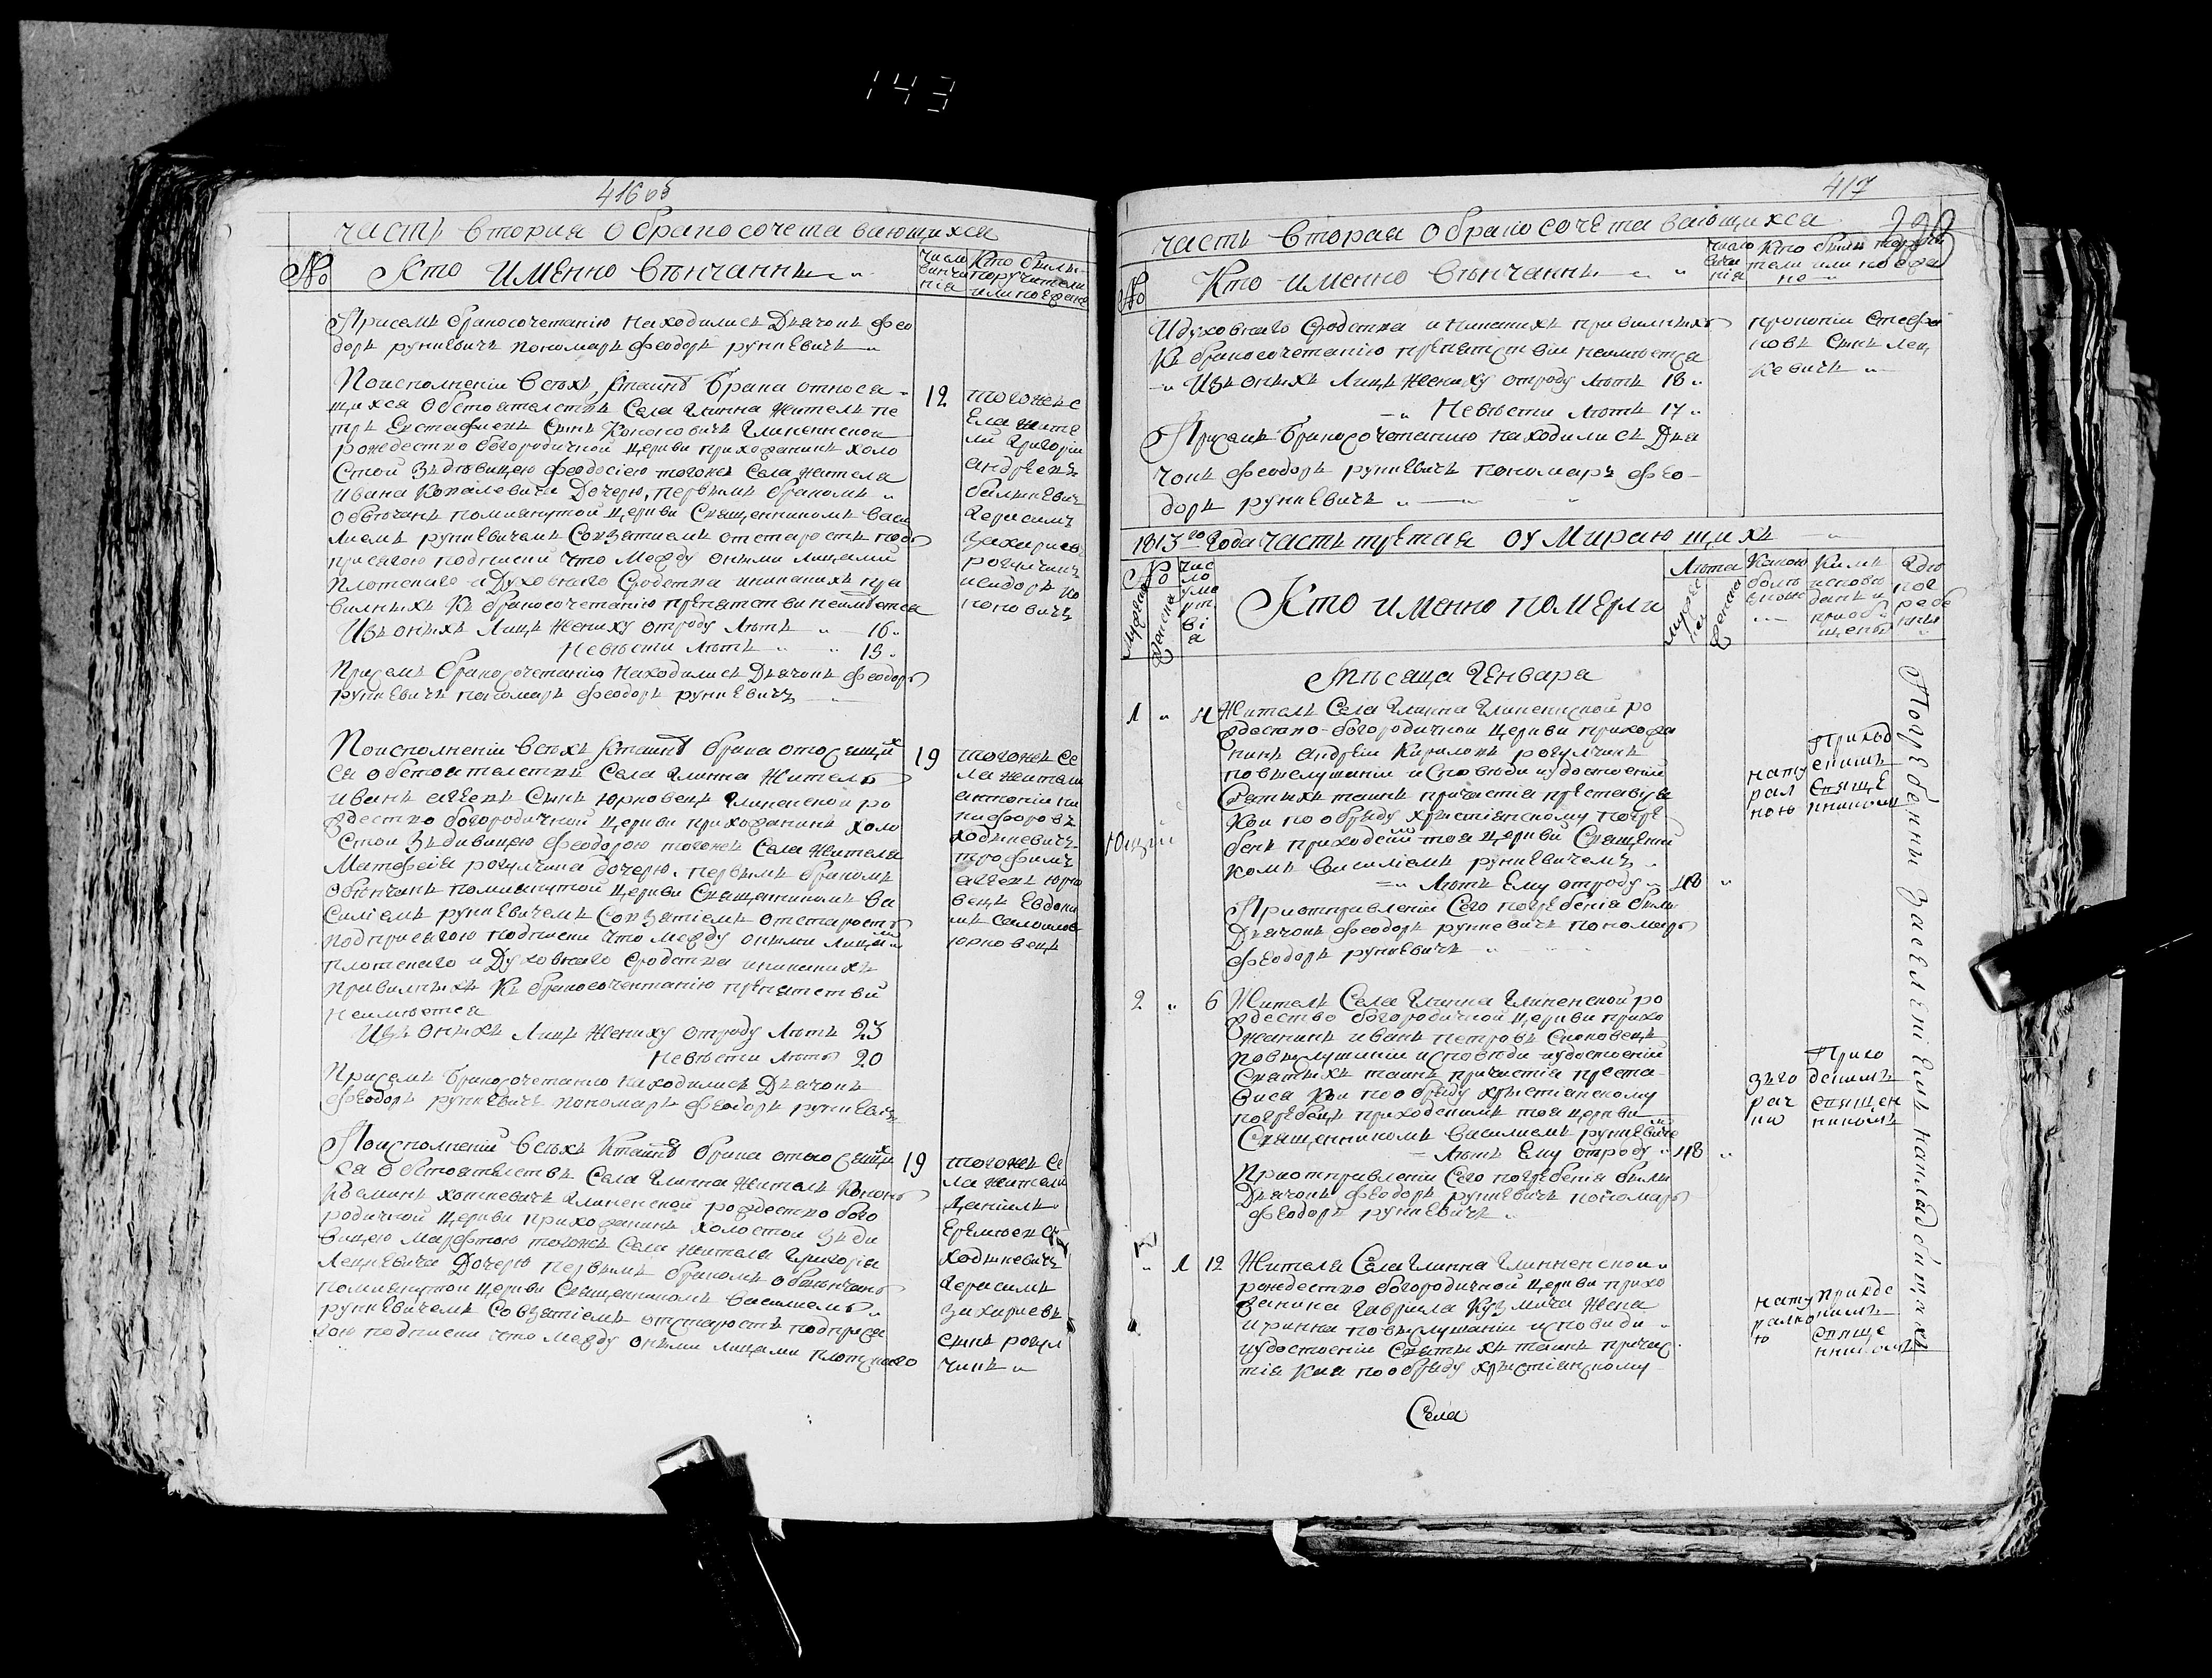 143
416 об
часть вторая о бракосочетавающихся
№ Кто именно венчанны
число венчанія
Кто были поручители или поезжане
При семъ бракосочетанію находились Дьячокъ Фео
доръ рункевичъ пономаръ Феодоръ рункевичъ
По исполненіи всехъ ктаинѣ брака относя
щихся обстоятелствъ Села Глинна Жителъ пе
тръ Евстафиевъ Сынъ Кононовичъ Глиненской
рождество богородичной церкви прихожанинъ холо
стой зъ дѣвицею феодосіею тогожъ Села жителя
ивана Ковалевича Дочерю, первымъ бракомъ
обвѣчанъ помянутой церкви Священникомъ Васи
лиемъ рункевичемъ Совзятиемъ отстаростъ подъ
присягою подписки что между оными лицами
плотскаго и Духовнаго Сродства иникакихъ пра
вилныхъ къ бракосочетанію препятстви неимѣется
Изъ оныхъ Лицъ Жениху отроду Лѣтъ 16
Невѣсти Лѣтъ 15
При семъ бракосочетанію находились Дьячокъ Феодоръ
рункевичъ пономаръ Феодоръ рункевичъ
12
тогожъ с
ела жите
ли григорій
андреевъ
Герасимъ
Захариевъ
рогулчикъ
исидоръ ко
коновичъ
По исполненіи всехъ ктаинѣ брака относящих
ся обстоятелствъ Села Глинна Жителъ
иванъ авдеевъ Сынъ юрковецъ Глиненской ро
ждество богородичной церкви прихожанинъ холо
стой зъ дивицею феодорою тогожъ Села жителя
Матфеія рогулчика дочерю, первымъ бракомъ
обвѣнчанъ помянутой церкви Священникомъ Ва
силіемъ рункевичемъ Совзятіемъ отстаростъ
под присягою подписки что между оными лицами
плотскаго и Духовнаго Сродства иникакихъ
правилныхъ къ бракосочентанію препятствій
неимѣется
Изъ оныхъ Лицъ Жениху отроду Лѣтъ 23
Невѣсти Лѣтъ 20
При семъ бракосочетанію находились Дьячокъ
Феодоръ рункевичъ пономаръ Феодоръ рункевичъ
19
тогожъ се
ла жители
антоній ни
кифоровъ
ходыкевичъ
трофимъ
авдеевъ юрко
вецъ Евдоки
мъ самоиловъ
юрковецъ
По исполненій всехъ ктаинѣ брака относящих
ся обстоятелствъ Села Глинна Жителъ Кононъ
Козминъ хотневичъ глиненской рождество бого
родичной церкви прихожанинъ холостой зъ ди
вицею Марфтою тогожъ Села жителя Григорія
Лецкевича Дочерю первымъ бракомъ обвѣнчанъ
помянутой церкви Священникомъ Василиемъ
рункевичемъ Совзятіемъ отстаростъ подприся
гою подписки что между оными лицами плотскаго
19
тогожъ се
ла жители
Даніилъ
Еремѣевъ
ходыкевичъ
Герасимъ
Захариевъ
сынъ рогул
чикъ
417
часть вторая о бракосочетавающихся
№ Кто именно венчанны
число венчанія
Кто были поручители или поезжано
И духовнаго Сродства и никакихъ правилныхъ
къ бракосочетанію препятствіи неимѣется
Изъ оныхъ Лицъ Жениху отроду Лѣтъ 18
Невѣсти Лѣтъ 17
При семъ бракосочетанию находились Дья
чокъ Феодоръ рункевичъ пономаръ Фео-
доръ рункевичъ
прокопій Стефа
новъ Сынъ лец
кевичъ
1813го Года часть третая о умираю щихъ
№
мужеска
женска
число умертвія
Кто именно померли
Лѣта
мужеска
женско
Какою болезнію
Кимъ исповеданъ и приобщенъ
Где погребены
Мѣсяца Генвара
1 " 4
Жителъ Села Глинна Глиненской ро
ждество-богородичной церкви прихожа
нинъ андреій Кириловъ рогулчикъ
повыслушаніи исповѣди иудостоеній
Святыхъ таинъ причастія преставися
кои по обряду христіянскому погре
бенъ приходскимъ тоя церкви Священни
комъ Василіемъ рункевичемъ
Лѣтъ Ему отроду 48
При отправленіи Сего погребенія были
Дьячокъ Феодоръ рункевичъ пономаръ
феодоръ рункевичъ
натурал ною
Приход скимъ Священникомъ
2 " 6
Жителъ Села Глинна Глиненской ро
ждество богородичной церкви прихо
жанинъ иванъ петровъ Сноковецъ
повыслушаніи исповѣди иудостоеній
Святыхъ таинъ причастія преста
вися кои по обряду христіянскому
погребенъ приходскимъ тоя церкви
Священникомъ Василиемъ рункевиче
Лѣтъ Ему отроду 48
При отправленіи Сего погребенія были
Дьячокъ феодоръ рункевичъ пономаръ
феодоръ рункевичъ
Прихо дскимъ священ никомъ
" 1 12
Жителя Села Глинна Глинненской
рождество богородичной церкви прихо
жанина Гавріила Кузмича Жена
иринна повыслушаніи исповиди
иудостоеніи Святыхъ таинъ причас
тія кая по обряду христіянскому
натурално ю
приходс кимъ свяще нникомъ
Погребенны за селеніемъ на кладбищахъ
Села